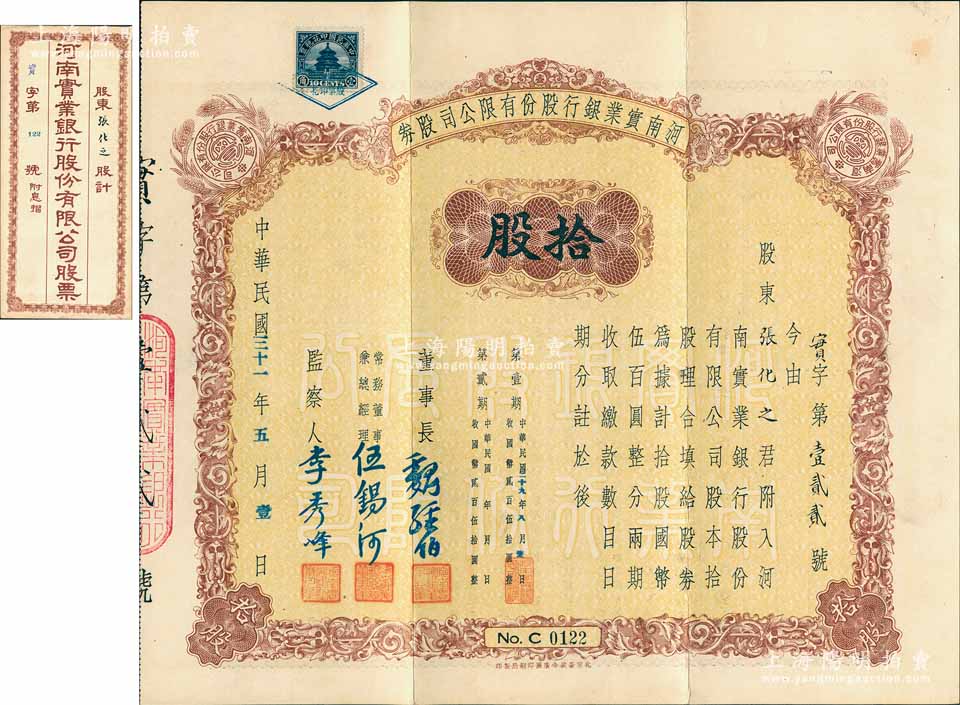 河南實業銀行股份有限公司股票
股東張化之股計
實字第122號附息摺
河南實業銀行股份有限公司股券
10 CENTS
拾股
實字第壹貳貳號
股東張化之君附入河
今由
南實業銀行股份
有限公司股本拾
股理合填給股券
爲據計拾股國幣
伍百圓整分兩期
收取繳款數目日
期分註於後
第壹期 中華民國二十九年八月壹日 收國幣貳百伍拾圓整
第貳期 中華民國 年 月 日 收國幣貳百伍拾圓整
董事長 魏經伯
常務董事兼總經理 伍錫河
監察人 李秀峰
中華民國三十一年五月壹日
拾股
拾股
No. C 0122
實字第壹貳貳號
上海陽明拍賣
www.yangmingauction.com